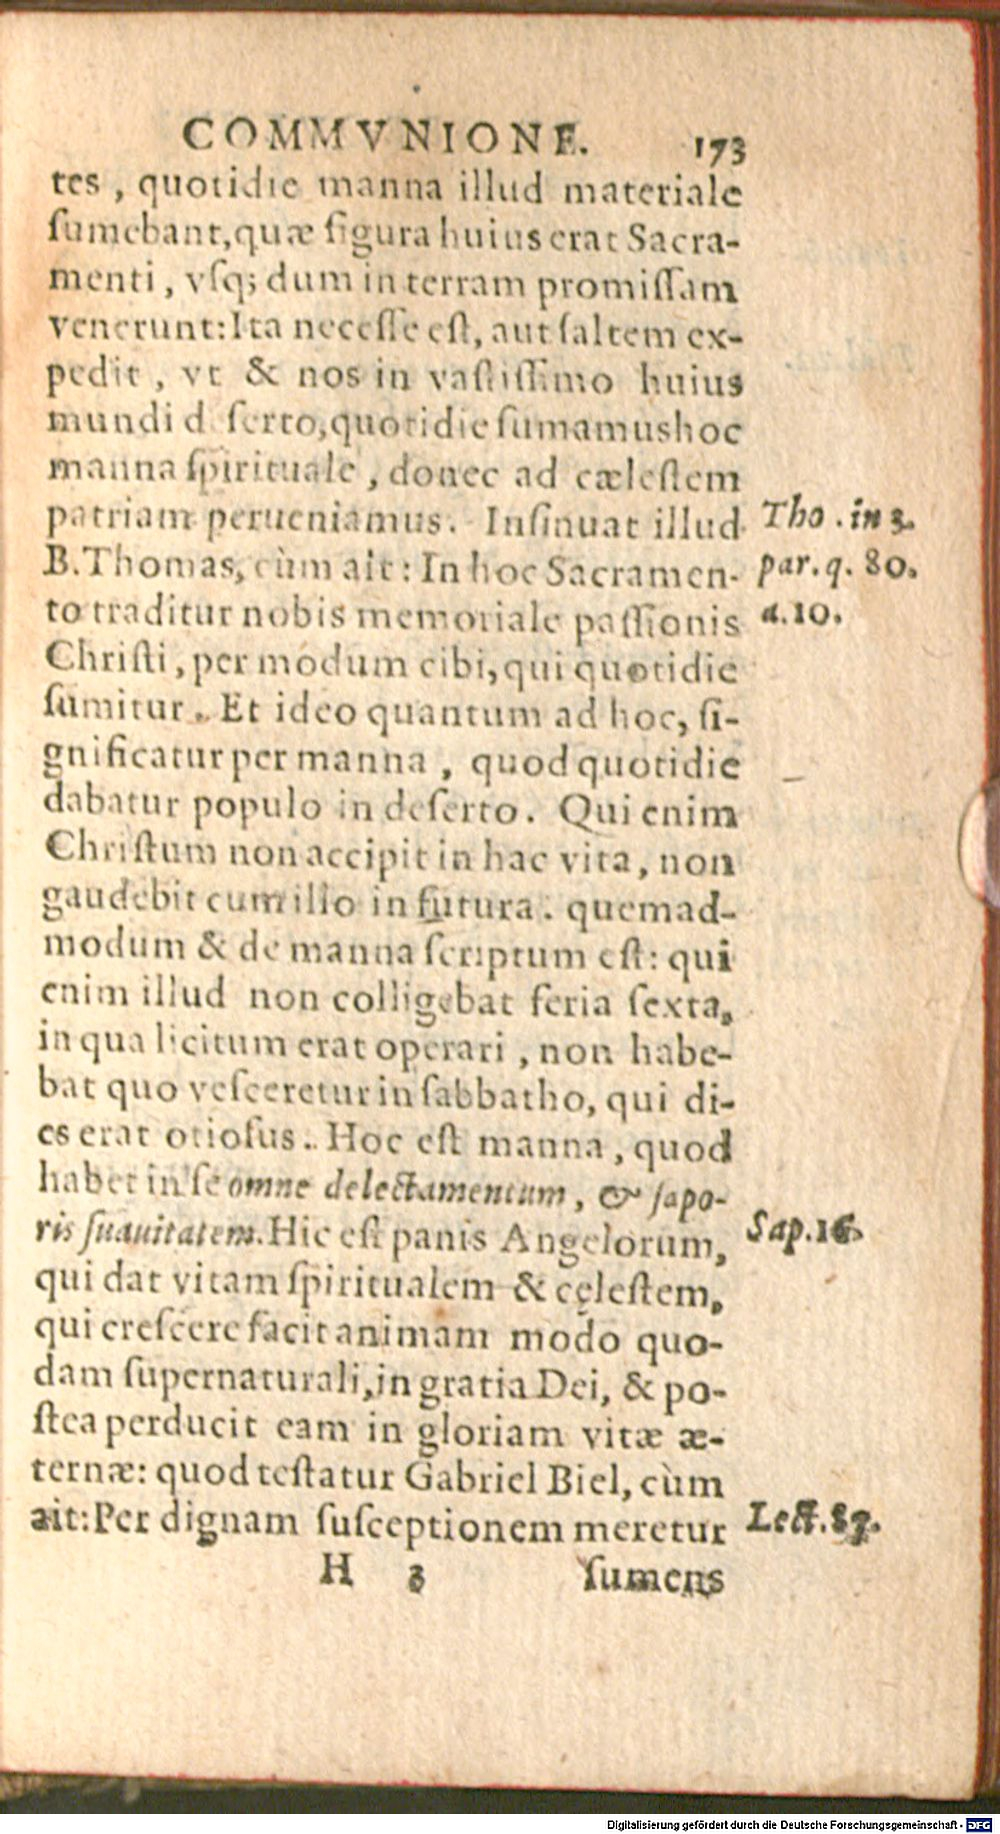 COMMVNIONE. 173
tes, quotidie manna illud materiale
ſumebant, quæ figura huius erat Sacra-
menti, vſq; dum in terram promiſſam
venerunt: Ita neceſſe eſt, aut ſaltem ex-
pedit, vt & nos in vaſtiſſimo huius
mundi d ſerto, quotidie ſumamus hoc
manna ſpirituale, donec ad cæleſtem
patriam perueniamus. Inſinuat illud
Tho. in 3.
B. Thomas, cùm ait: In hoc Sacramen-
par. q. 80.
to traditur nobis memoriale paſſionis
a. 10.
Chriſti, per modum cibi, qui quotidie
ſumitur. Et ideo quantum ad hoc, ſi-
gnificatur per manna, quod quotidie
dabatur populo in deſerto. Qui enim
Chriſtum non accipit in hac vita, non
gaudebit cum illo in futura. quemad-
modum & de manna ſcriptum eſt: qui
enim illud non colligebat feria ſexta,
in qua licitum erat operari, non habe-
bat quo veſceretur in ſabbatho, qui di-
es erat otioſus. Hoc eſt manna, quod
habet in ſe omne delectamentum, & ſapo-
ris ſuauitatem. Hic eſt panis Angelorum,
Sap. 16.
qui dat vitam ſpiritualem & cęleſtem,
qui creſcere facit animam modo quo-
dam ſupernaturali, in gratia Dei, & po-
ſtea perducit eam in gloriam vitæ æ-
ternæ: quod teſtatur Gabriel Biel, cùm
ait: Per dignam ſuſceptionem meretur
Lect. 87.
H 3 ſumens
Digitalisierung gefördert durch die Deutsche Forschungsgemeinschaft - DFG